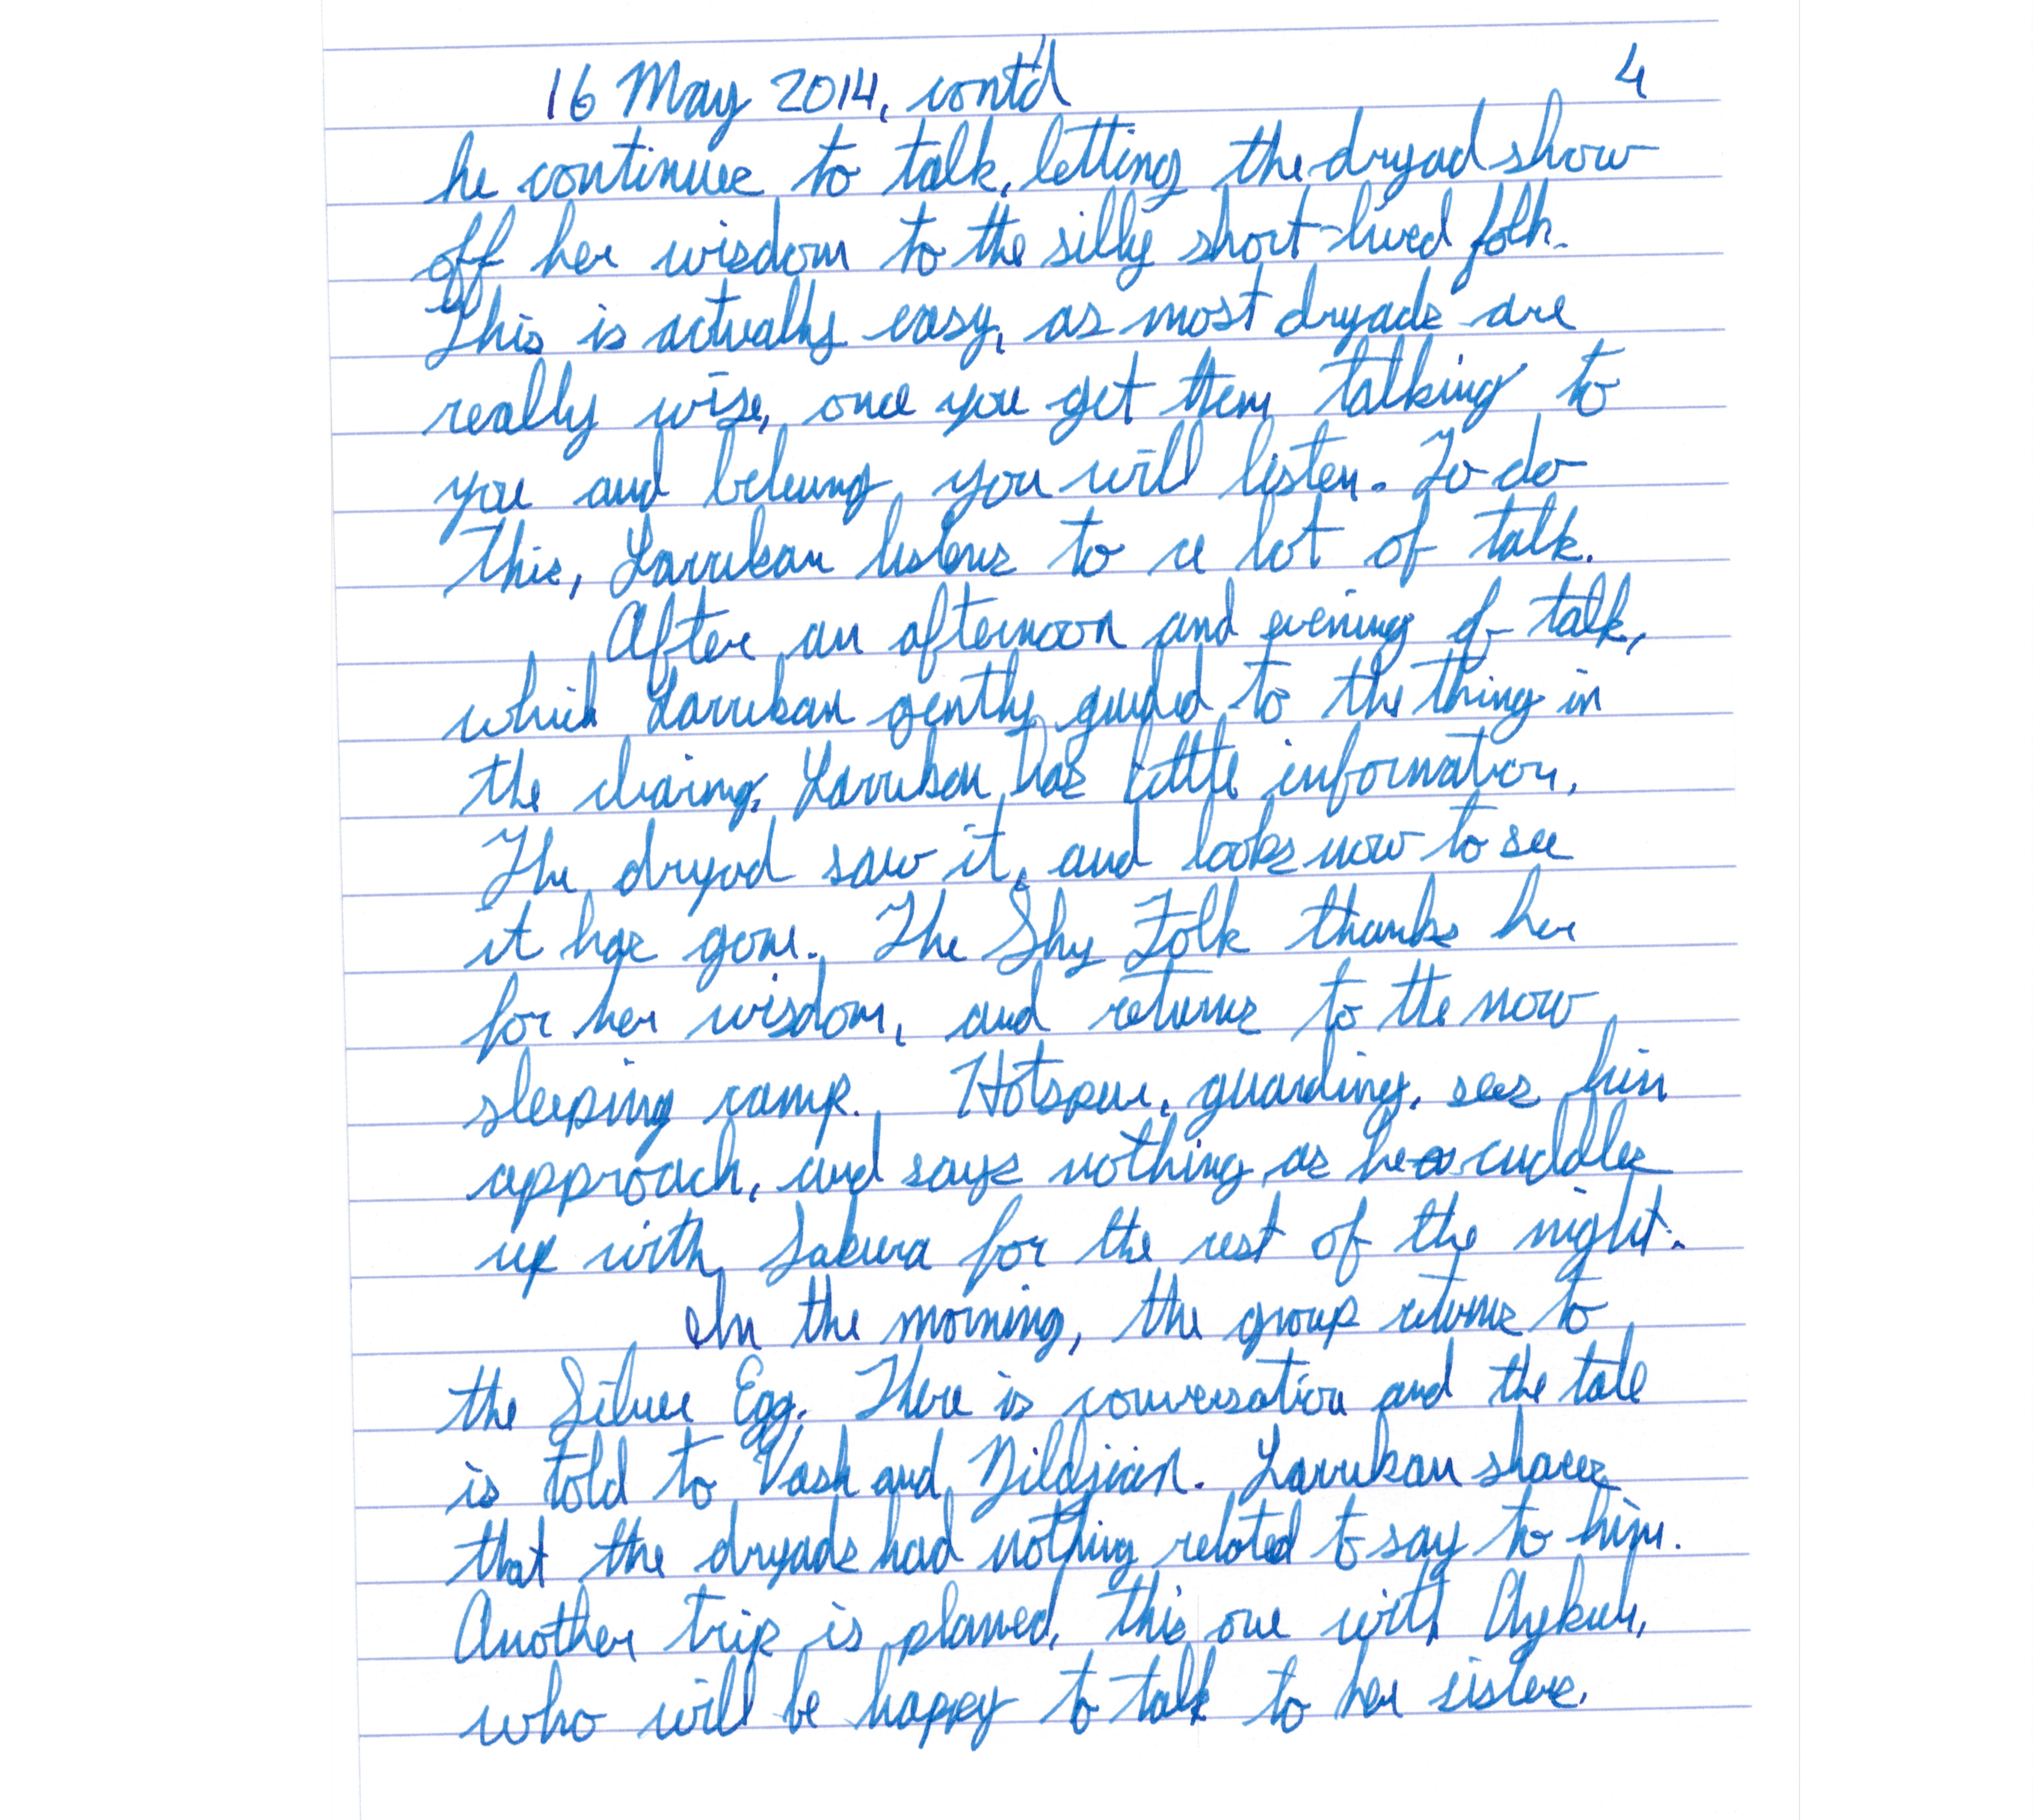 16 May 2014, cont'd 4
he continues to talk, letting the dryad show
off her wisdom to the silly short-lived folk.
This is actually easy, as most dryads are
really wise, once you get them talking to
you and believing you will listen. To do
this, Larrikan listens to a lot of talk.
After an afternoon and evening of talk,
which Larrikan gently guided to the thing in
the clearing, Larrikan has little information.
The dryad saw it, and looks now to see
it has gone. The Shy Folk thanks her
for her wisdom, and returns to the now
sleeping camp. Hotspur, guarding, sees him
approach, and says nothing as he cuddles
up with Sakura for the rest of the night.
In the morning, the group returns to
the Silver Egg. There is conversation and the tale
is told to Vash and Zildjian. Larrikan shares
that the dryads had nothing related to say to him.
Another trip is planned, this one with Aykuh,
who will be happy to talk to her sisters.